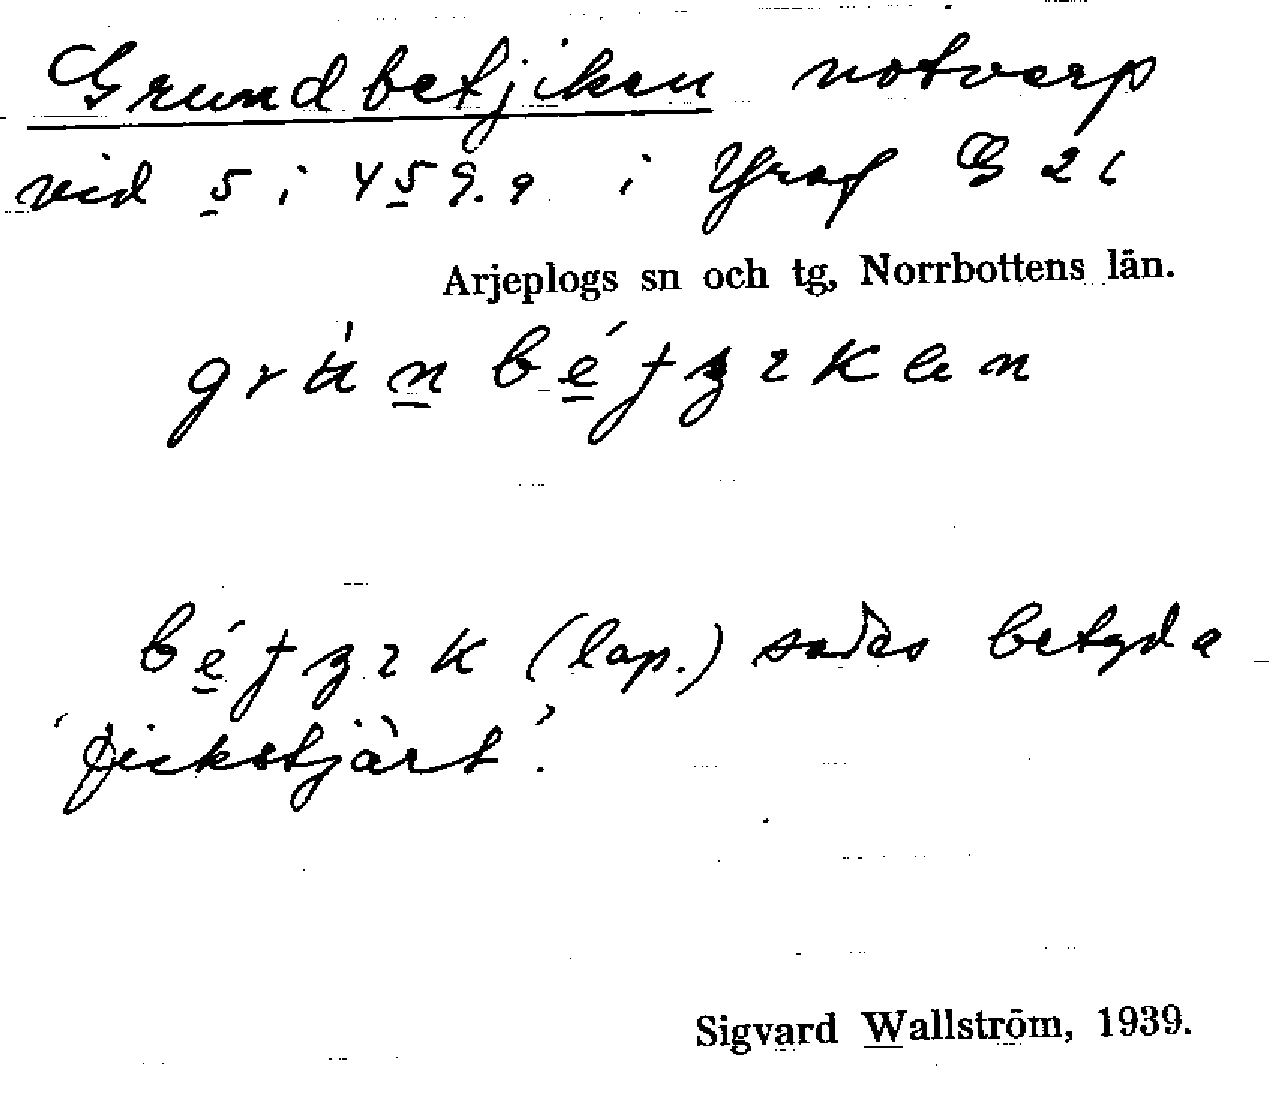 Grundbetjiken notvarp
vid 5 i 459.9 i Yraf G 2 c
Arjeplogs sn och tg, Norrbottens län.
(lap.) sades betyda
'fickstjärt'.
Sigvard Wallström, 1939.